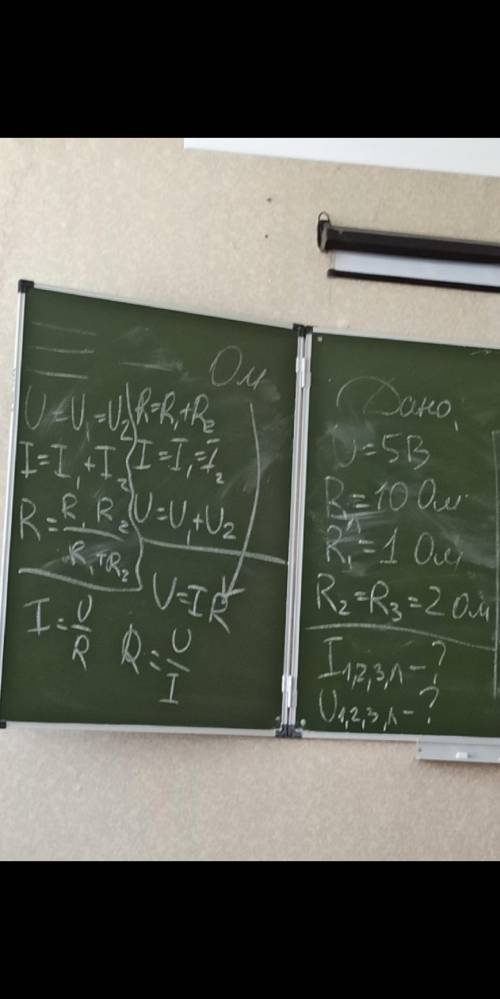 Ом
U=U₁=U₂
I=I₁+I₂
R=R₁R₂/R₁+R₂
R=R₁+R₂
I=I₁=I₂
U=U₁+U₂
U=IR
I=U/R
R=U/I
Дано,
U=5В
Rл=10 Ом
R₁=1 Ом
R₂=R₃=2 ом
I₁,₂,₃,л-?
U₁,₂,₃,л-?